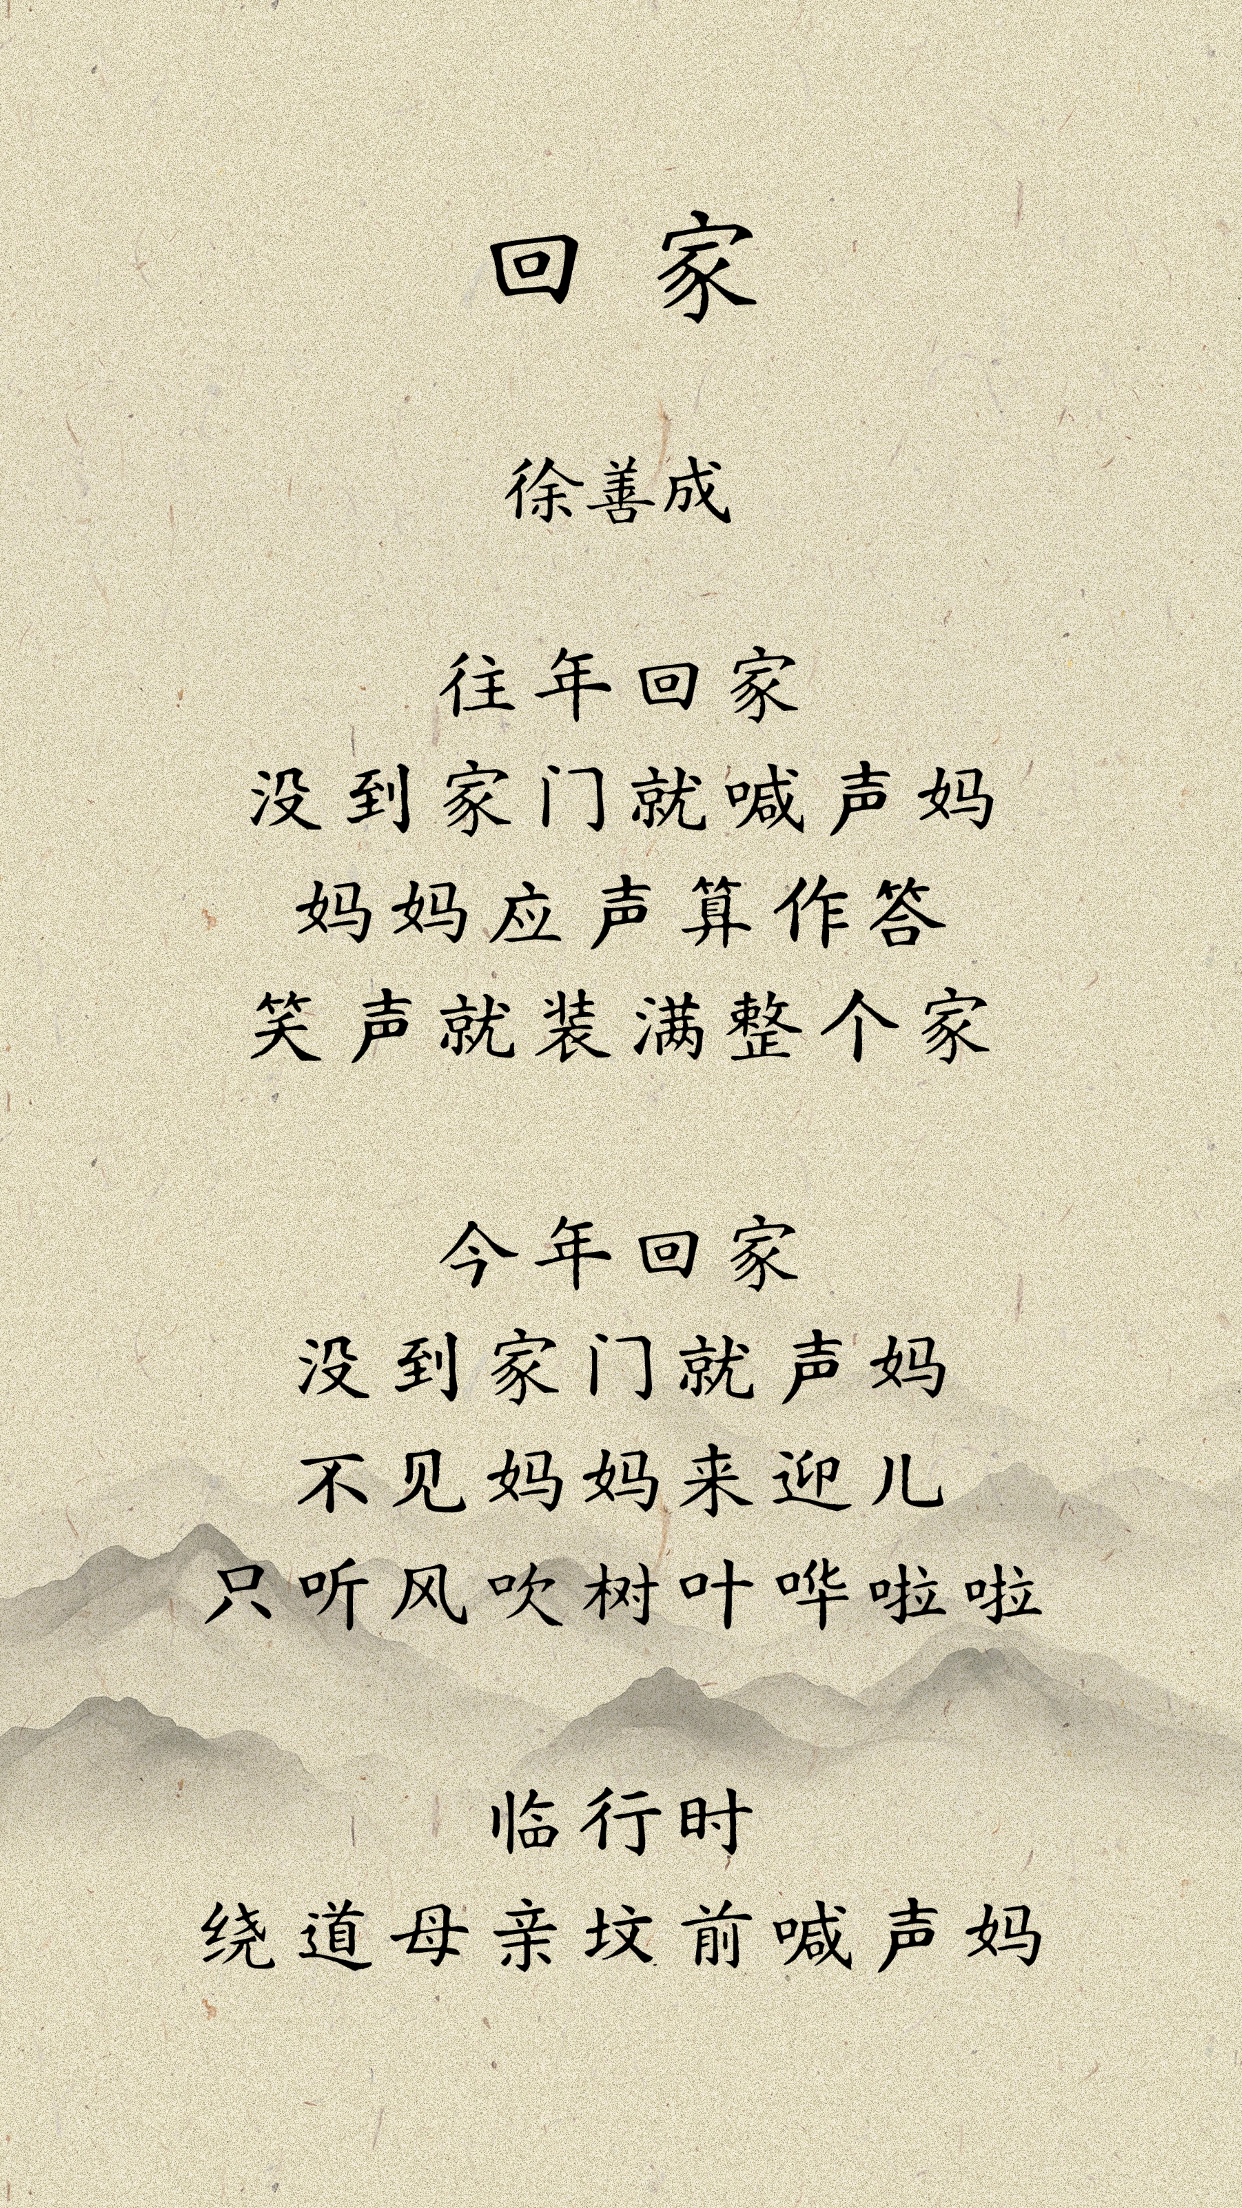 回家
徐善成
往年回家
没到家门就喊声妈
妈妈应声算作答
笑声就装满整个家
今年回家
没到家门就声妈
不见妈妈来迎儿
只听风吹树叶哗啦啦
临行时
绕道母亲坟前喊声妈